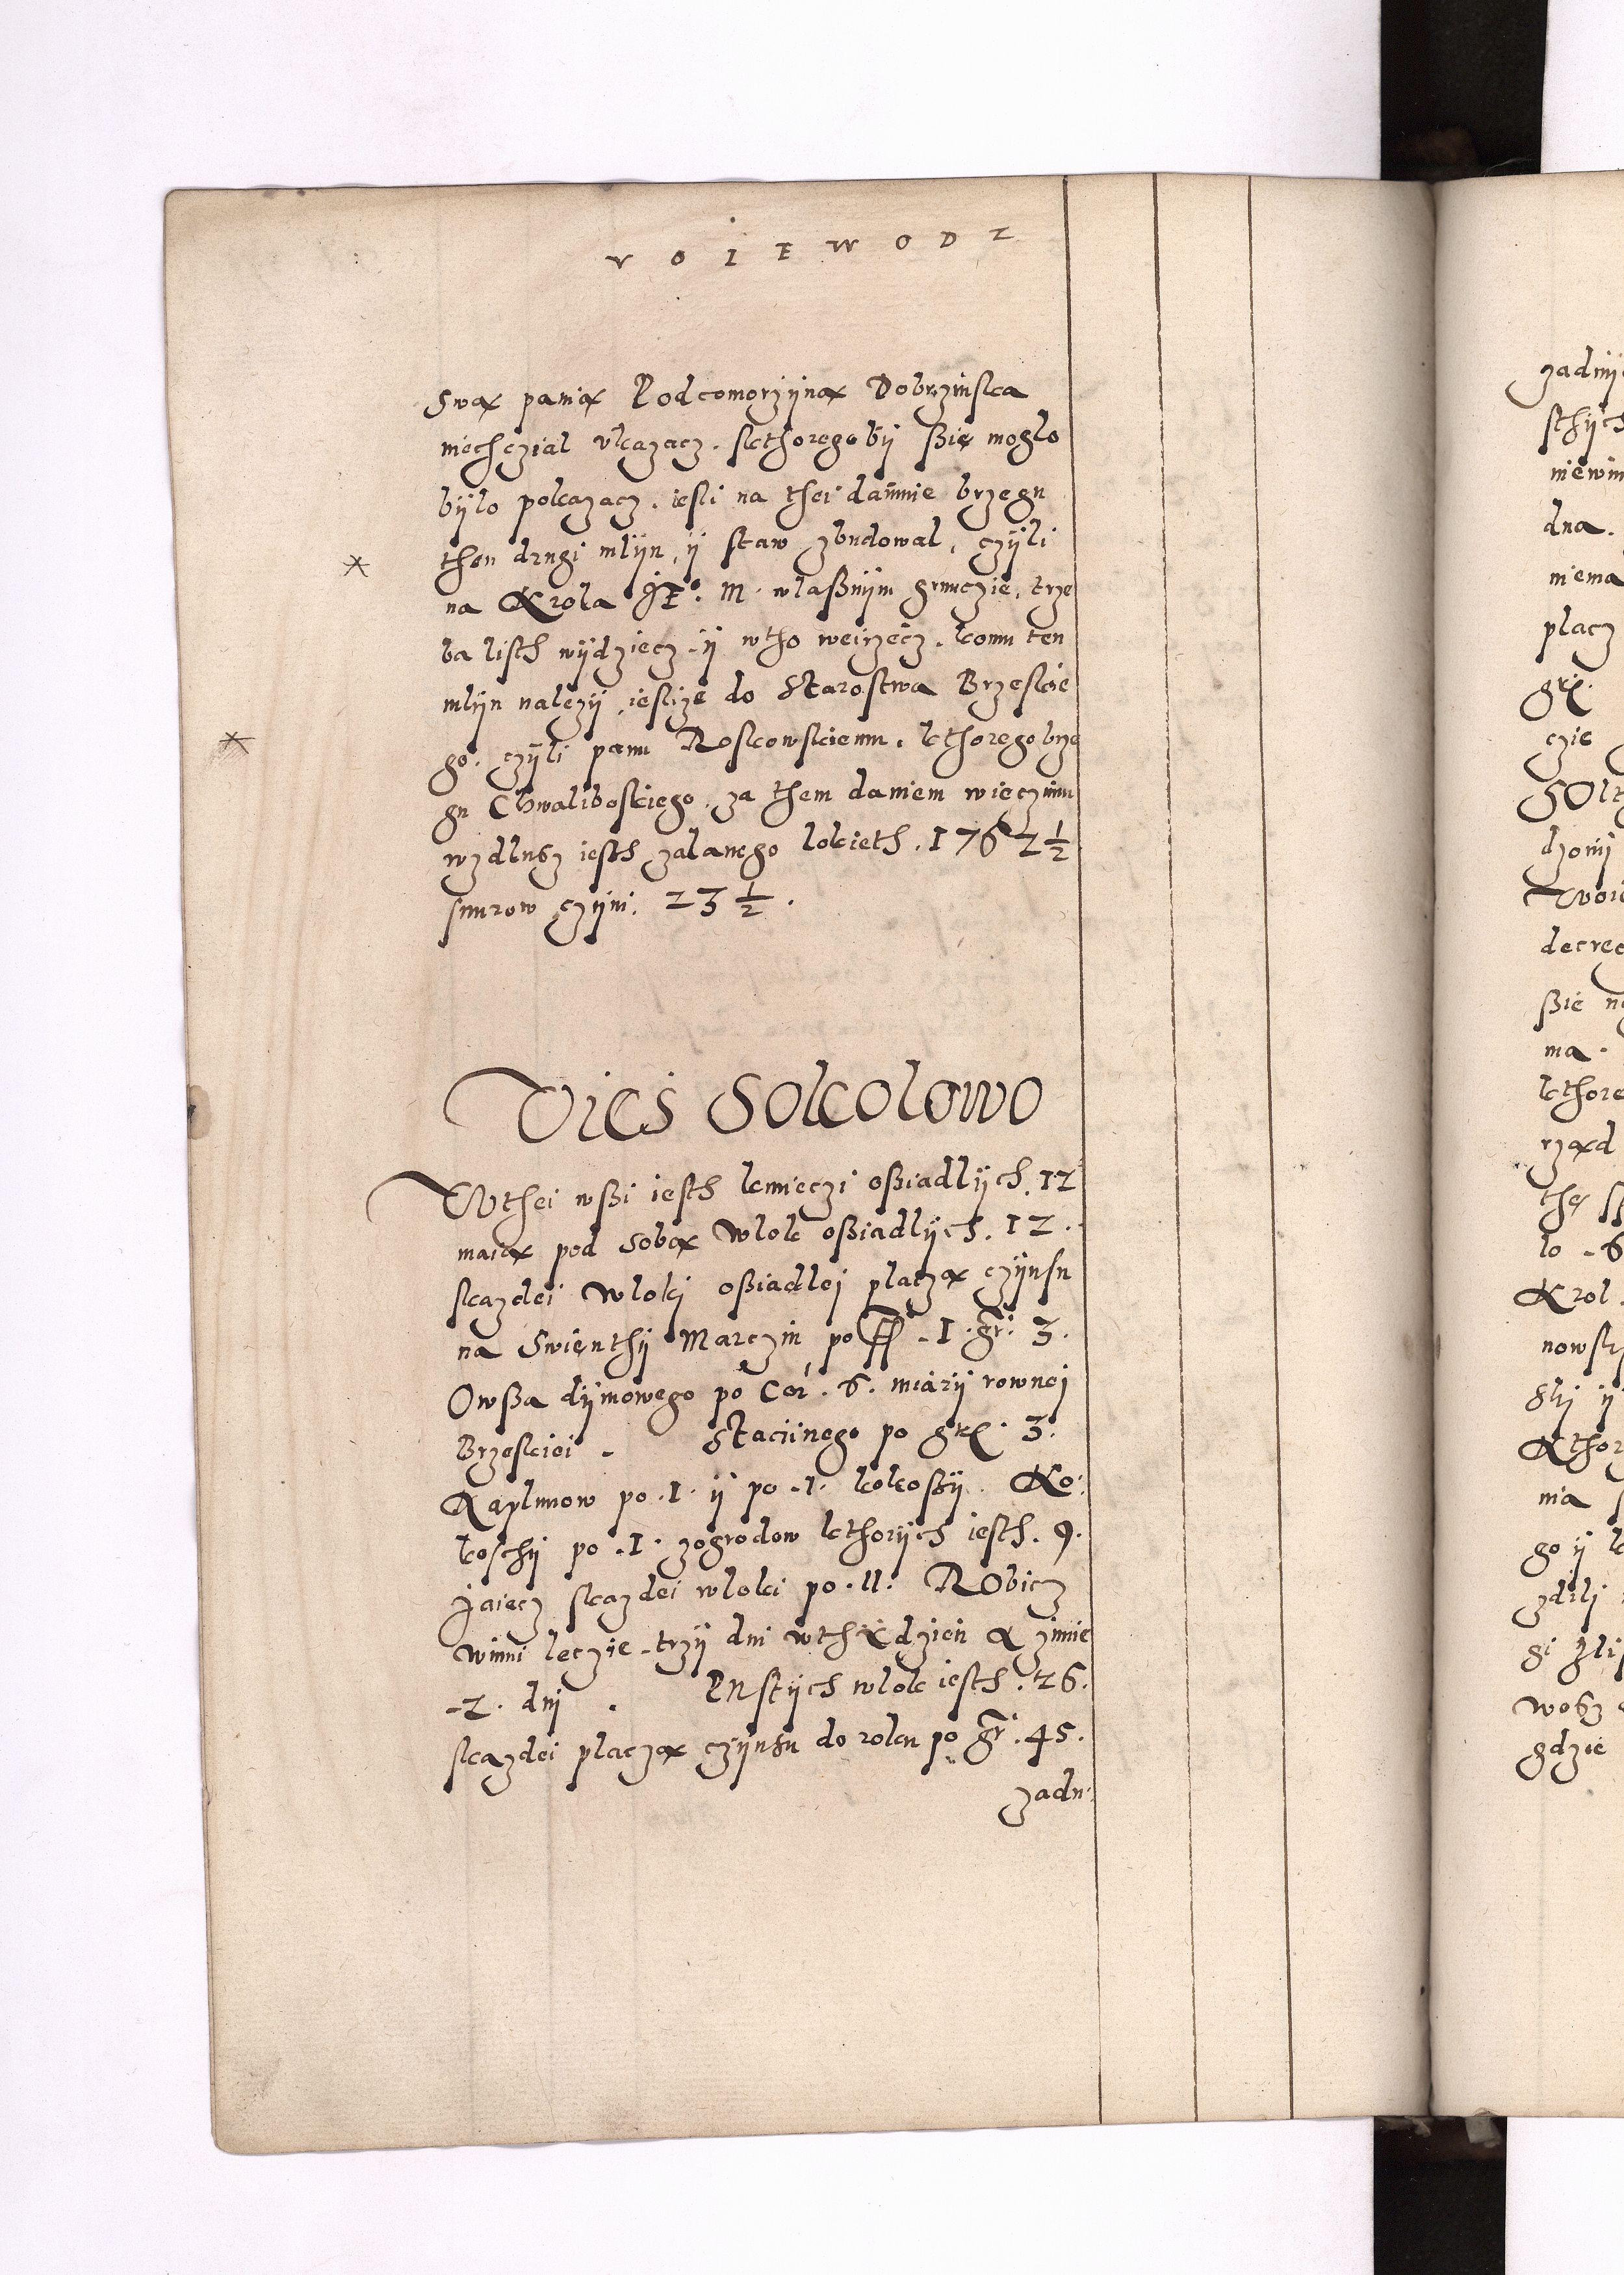 V O I E W O D Z
Swą panią Podcomorzyną Dobrzinska
niechczial vkazacz. skthorego by ßie moglo
bylo pokazacz. iesli na thei dannie brzegu
then drugi mlyn, y staw zbudowal, czyli
na Krola JE° M. wlaßnym grunczie, trze
ba listh wydziecz y wtho weirzecz. komu ten
mlyn nalezy, ieslize do Starostwa Brzeskie
go. czyli panu Roskowskiemu. kthorego brze
gu Chwaliboskiego. za them daniem wiecznim
wzdlusz iesth zalanego lokieth. 1762 1/2
snurow czyni. 23 1/2.
Vies Sokolowo
Wthei wßi iesth kmieczi oßiadlych. 12
maią pod Sobą Wlok oßiadlych. 12.
skazdei Wloki oßiadlei placzą czynsu
na Swienthy Marczin po ff. 1. gr. 3.
Owßa dymowego po Cor. 6. miary rownei
Brzeskiei. Stacyinego po gr. 3.
Kaplunow po. 1. y po. 1. kokoßy. Ko:
koschy po. 1. zogrodow kthorych iesth. 9.
Jaiecz skazdei wloki po. 11. Robicz
winni leczie trzy dni wthydzien A zimie
2. dni. PUstych wlok iesth. 26.
skazdei placzą czynsu do roku po gr. 45.
zadn:
zadny
sthych
dna.
niema
placz
gr.
czie
dzony
decrec
ßie
ma.
kthore
rząd
lo. 6
Krol.
ski y
Kthor
nia
go y
gdzie